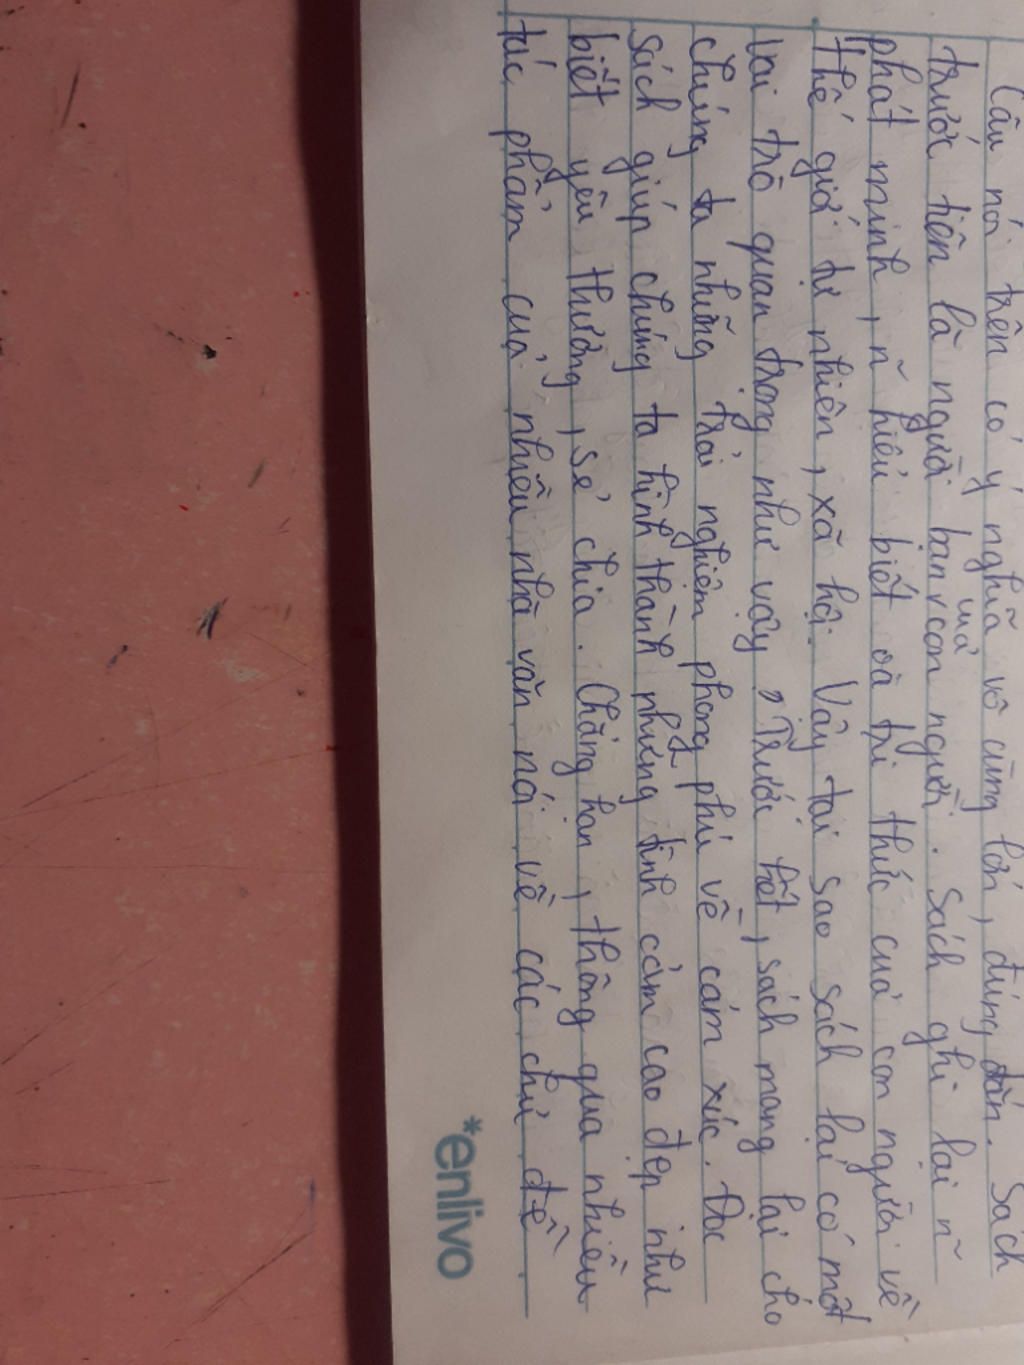 Câu nói trên có ý nghĩa vô cùng lớn, đúng đắn. Sách
trước tiên là người bạn của con người. Sách ghi lại n~
phát minh, n~ hiểu biết và tri thức của con người về
thế giới tự nhiên, xã hội. Vậy tại sao sách lại có một
vai trò quan trọng như vậy? Trước hết, sách mang lại cho
chúng ta những trải nghiệm phong phú về cảm xúc. Đọc
sách giúp chúng ta hình thành những tình cảm cao đẹp như
biết yêu thương, sẻ chia. Chẳng hạn, thông qua nhiều
tác phẩm của nhiều nhà văn nói về các chủ đề
*enlivo